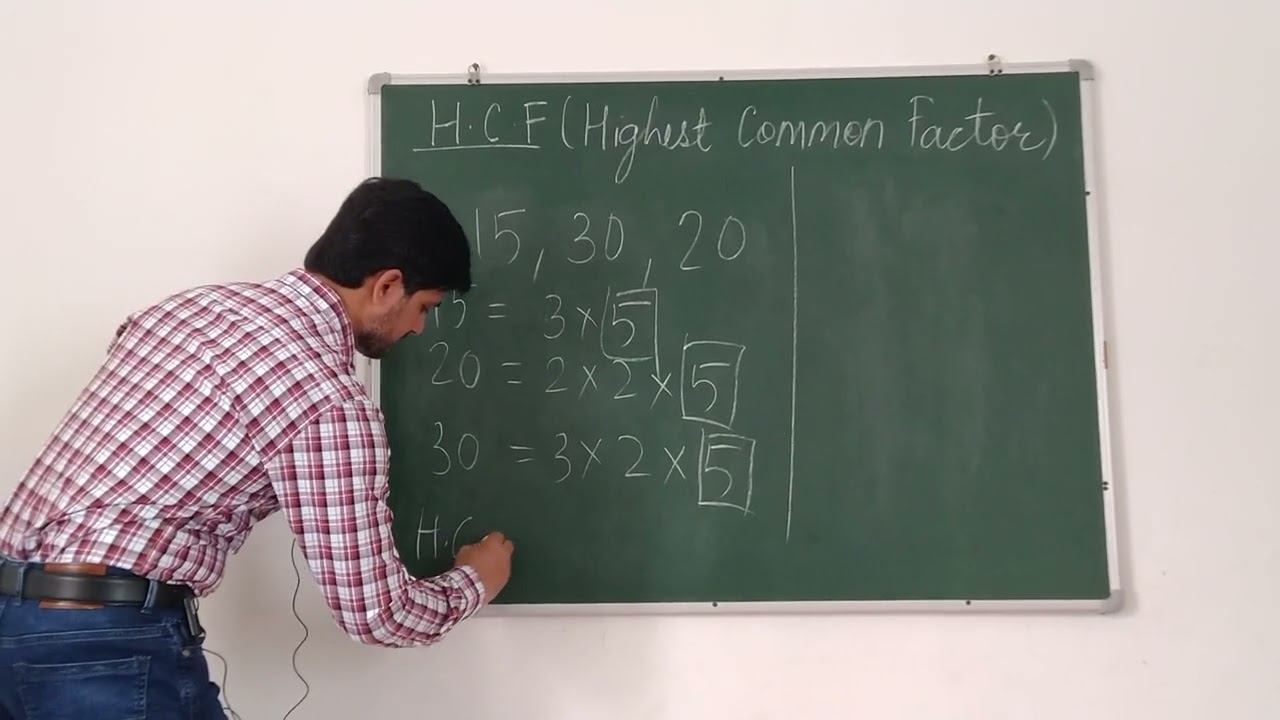 H.C.F (Highest Common Factor)
15, 30, 20
15 = 3×5
20 = 2×2×5
30 = 3×2×5
H.C